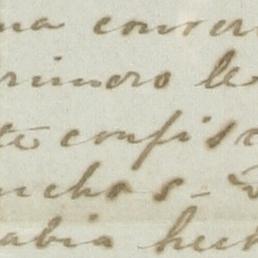 na conver
rimero le
te confisc
uchos -
abia hech